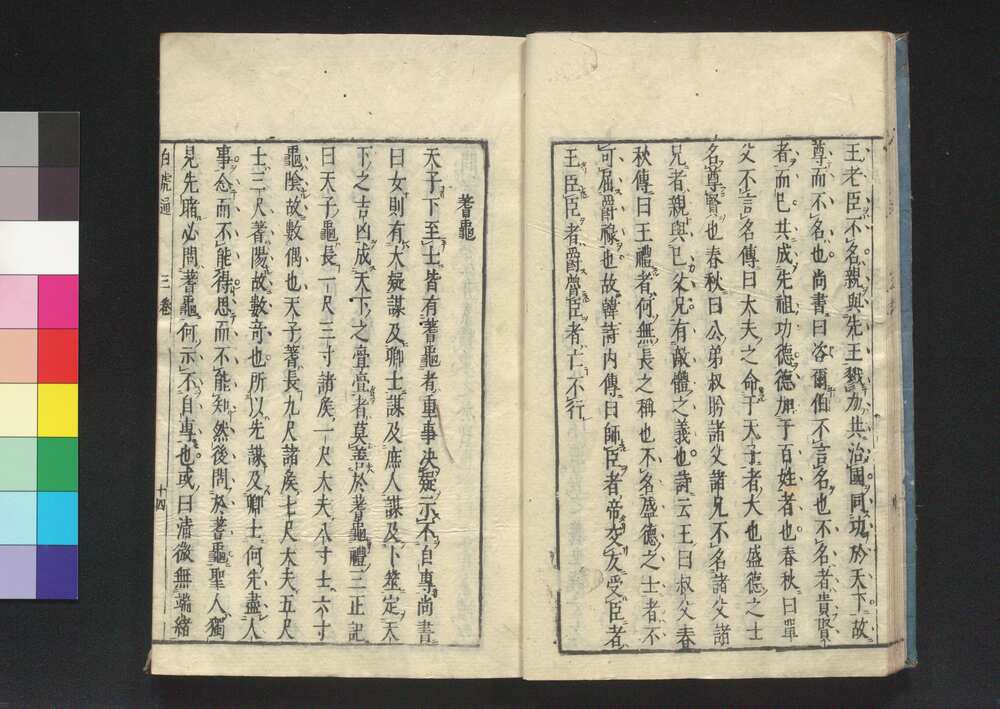 王老臣不名親與先王戮力共治國同功於天下故
尊而不名也尚書曰咨爾伯不言名也不名者貴賢
者而已共成先祖功德德加于百姓者也春秋曰單
父不言名傳曰大夫之命于天子者大也盛德之士
名尊賢也春秋曰公弟叔肸諸父諸兄不名諸父諸
兄者親與已父兄有敵體之義也詩云王曰叔父春
秋傳曰王禮者何無長之稱也不名盛德之士者不
可屈爵祿也故韓詩內傳曰師臣者帝交友受臣者
王臣臣者爵魯臣者亡不行
蓍龜
天子下至士皆有蓍龜者重事决疑示不自專尚書
曰女則有大疑謀及卿士謀及庶人謀及卜筮定天
下之吉凶成天下之亹亹者莫善於蓍龜禮三正記
曰天子龜長一尺二寸諸矦一尺大夫八寸士六寸
龜陰故數偶也天子蓍長九尺諸矦七尺大夫五尺
士三尺蓍陽故數竒也所以先謀及卿士何先盡人
事念而不能得思而不能知然後問於蓍龜聖人獨
見先睹必問蓍龜何示不自專也或曰清微無端緒
白虎通 三卷 十四